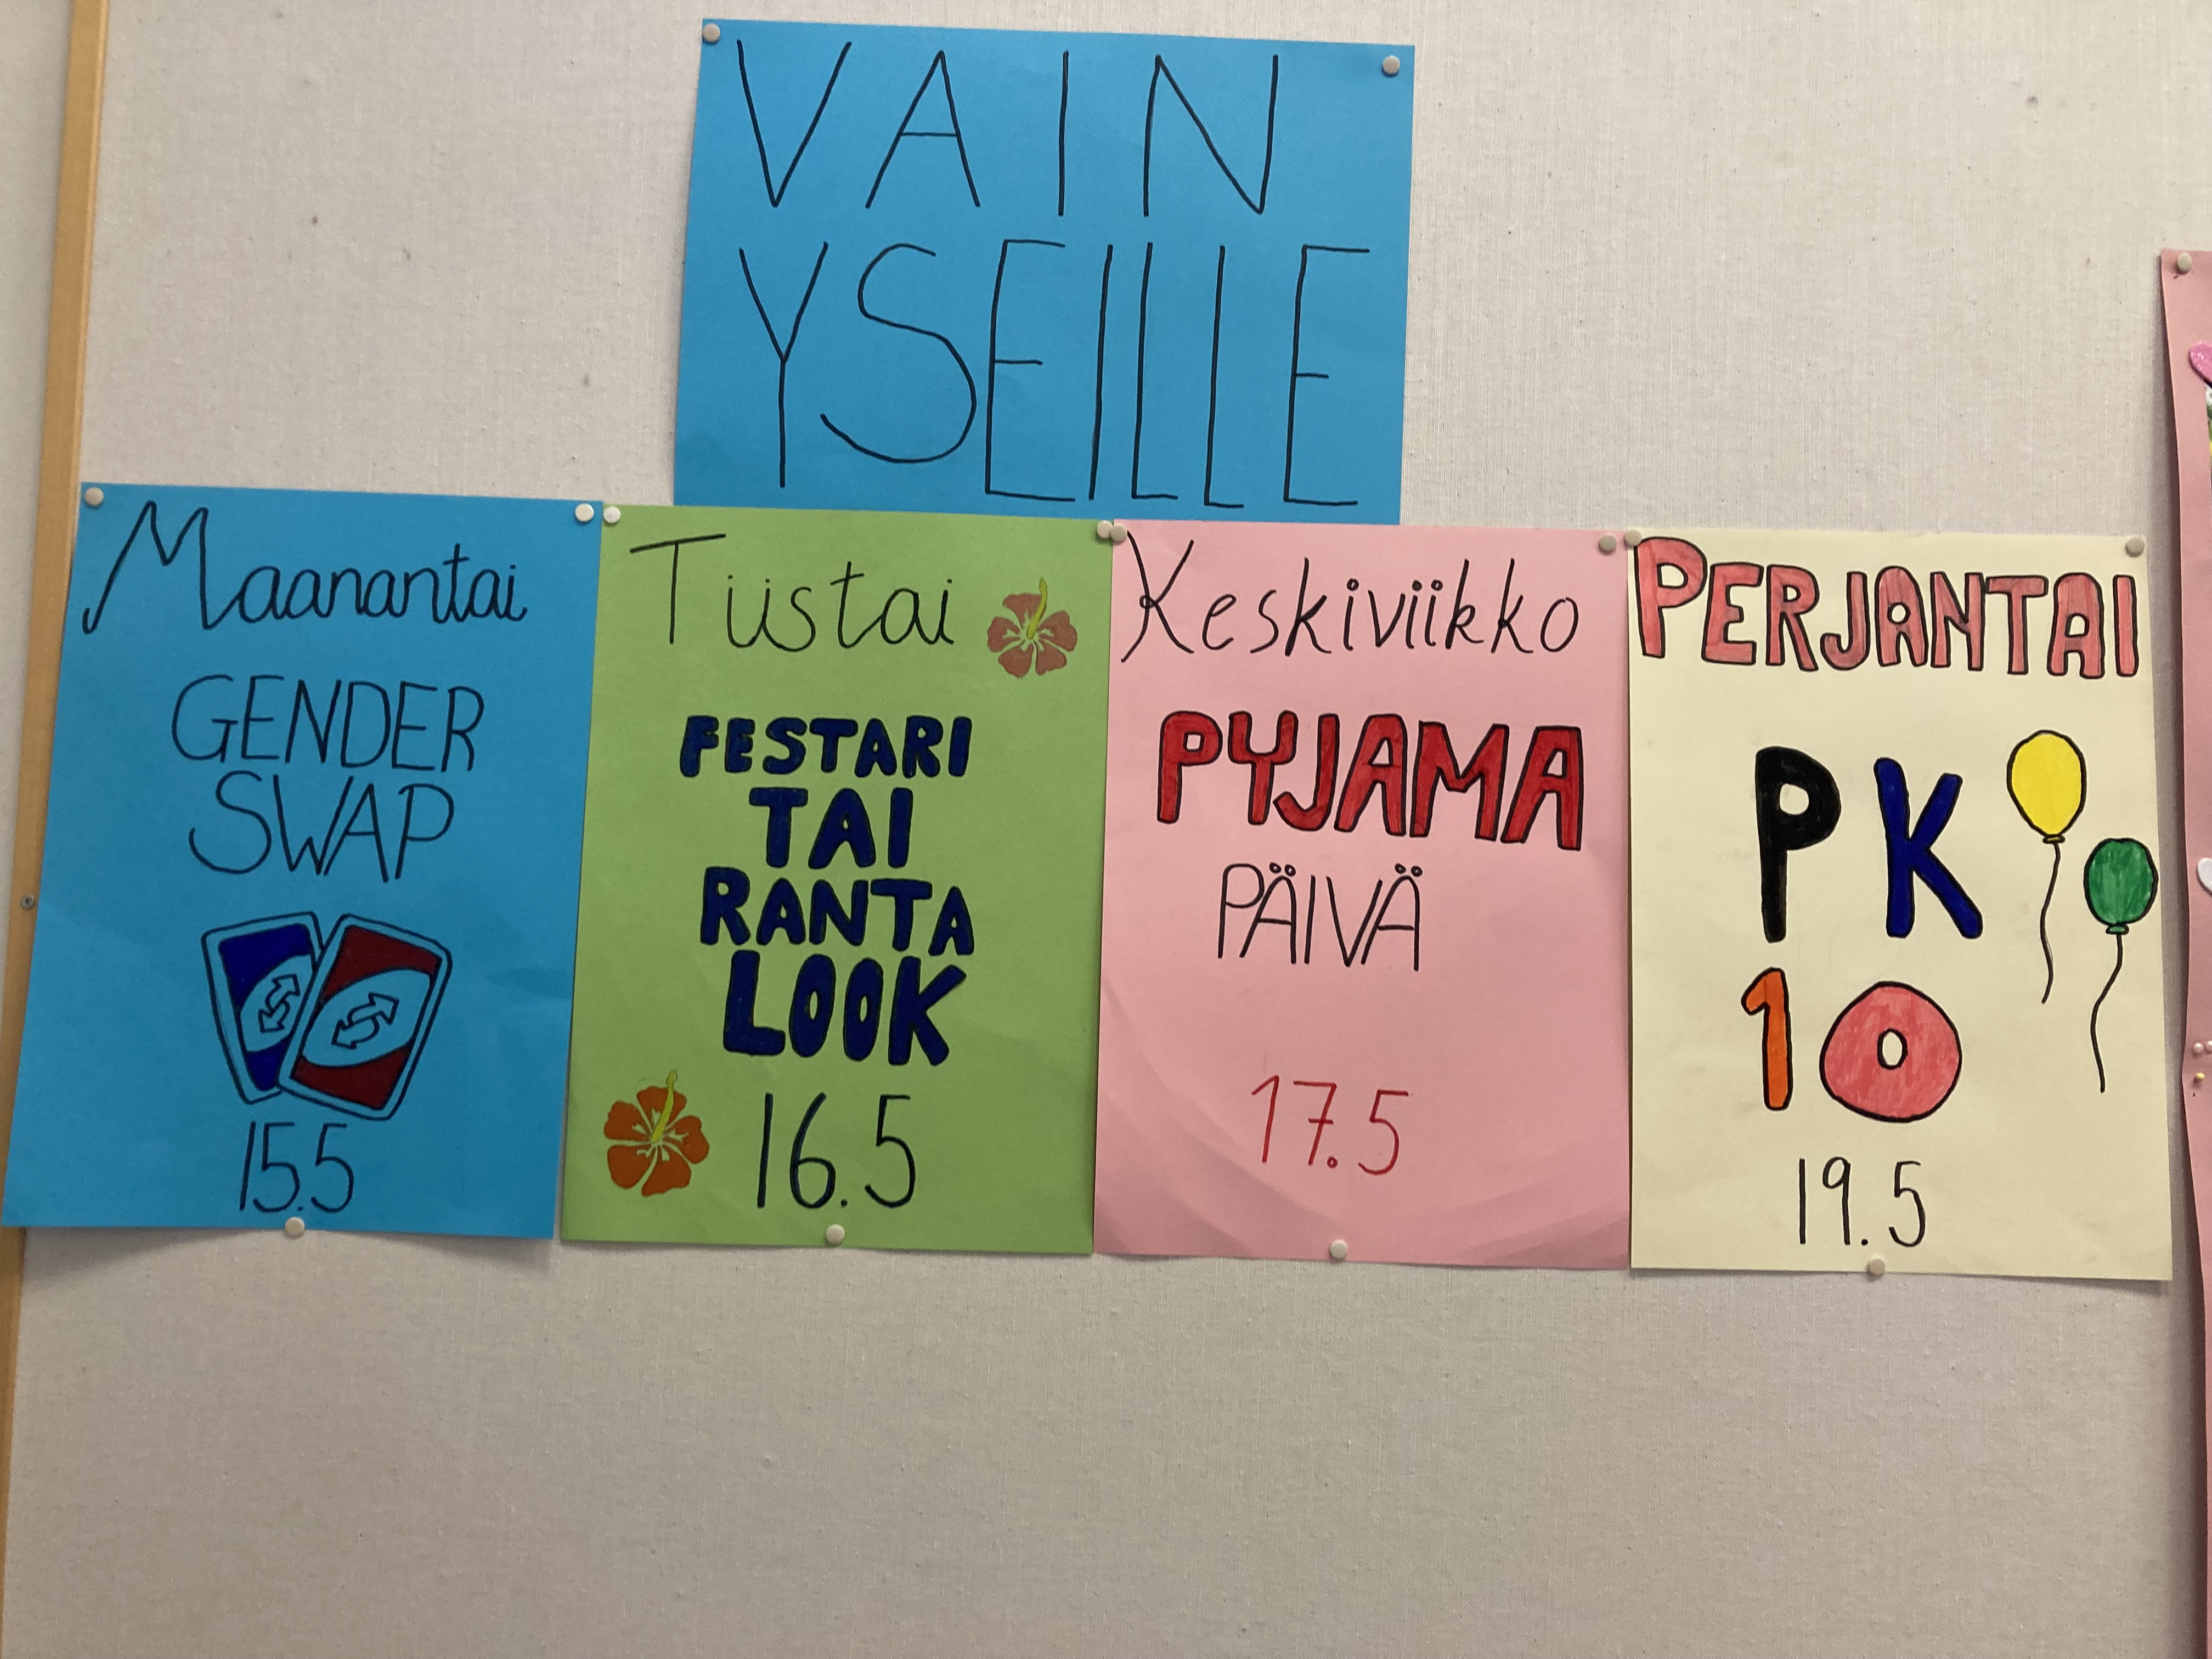 VAIN
YSEILLE
Maanantai
GENDER
SWAP
15.5
Tiistai
FESTARI
TAI
RANTA
LOOK
16.5
Keskiviikko
PYJAMA
PÄIVÄ
17.5
PERJANTAI
PK
10
19.5